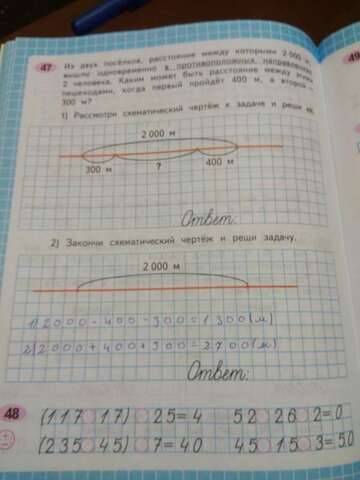 47 Из двух посёлков, расстояние между которыми 2 000 м,
вышли одновременно в противоположных направлениях
2 человека. Каким может быть расстояние между этими
пешеходами, когда первый пройдёт 400 м, а второй —
300 м?
1) Рассмотри схематический чертёж к задаче и реши её.
2 000 м
300 м ? 400 м
Ответ:
2) Закончи схематический чертёж и реши задачу.
2 000 м
1) 2000-400-300=1300(м)
2) 2000+400+300=2700(м)
Ответ:
48 (117 17) 25=4 52 26 2=0
(235 45) 7=40 45 15 3=50
49